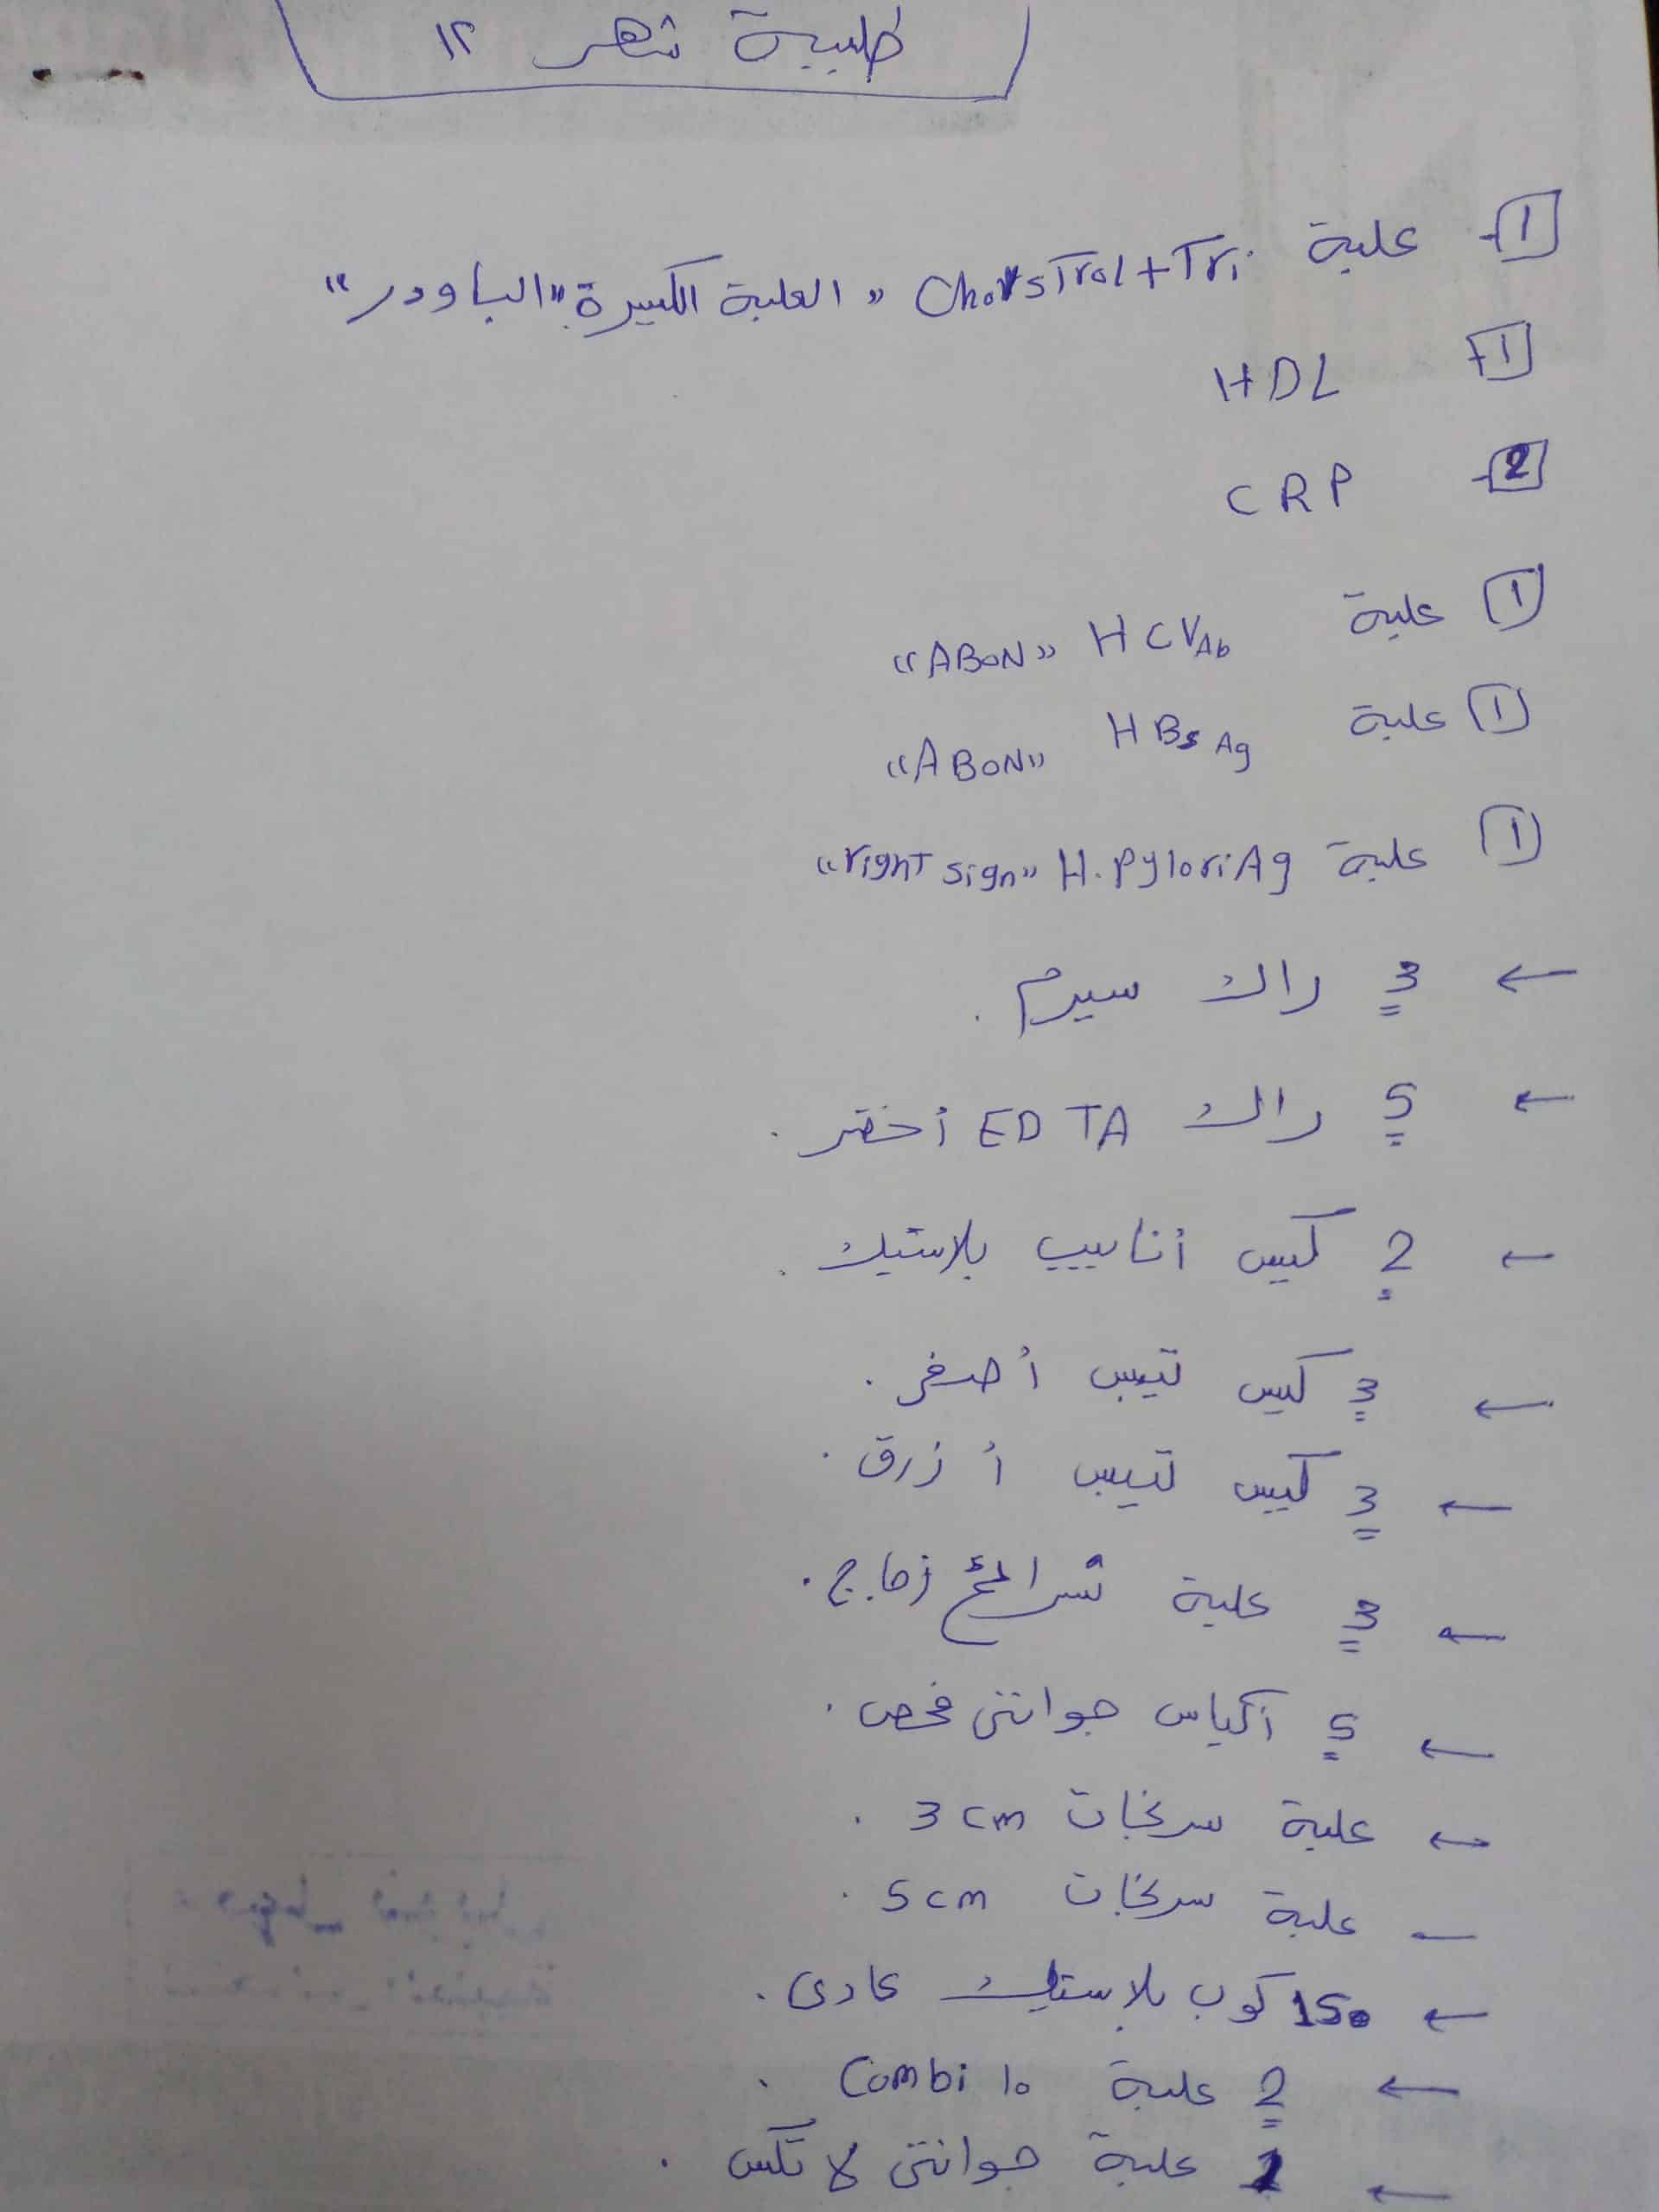 طلبية شهر ١٢
1- علبة Cholstrol + Tri "العلبة الكبيرة" "الباودر"
1- HDL
2- CRP
1 علبة HCV Ab "ABON"
1 علبة HBs Ag "ABON"
1 علبة H.pylori Ag "right sign"
← 3 راك سيرم.
← 5 راك EDTA أخضر.
← 2 كيس أنابيب بلاستيك.
← 3 كيس تيبس أصفر.
← 3 كيس تيبس أزرق.
← 3 علبة شرائح زجاج.
← 5 أكياس جوانتى فحص.
← علبة سرنجات 3 cm.
– علبة سرنجات 5 cm.
← 150 كوب بلاستيك عادى.
← 2 علبة Combi 10.
← 1 علبة جوانتى لاتكس.